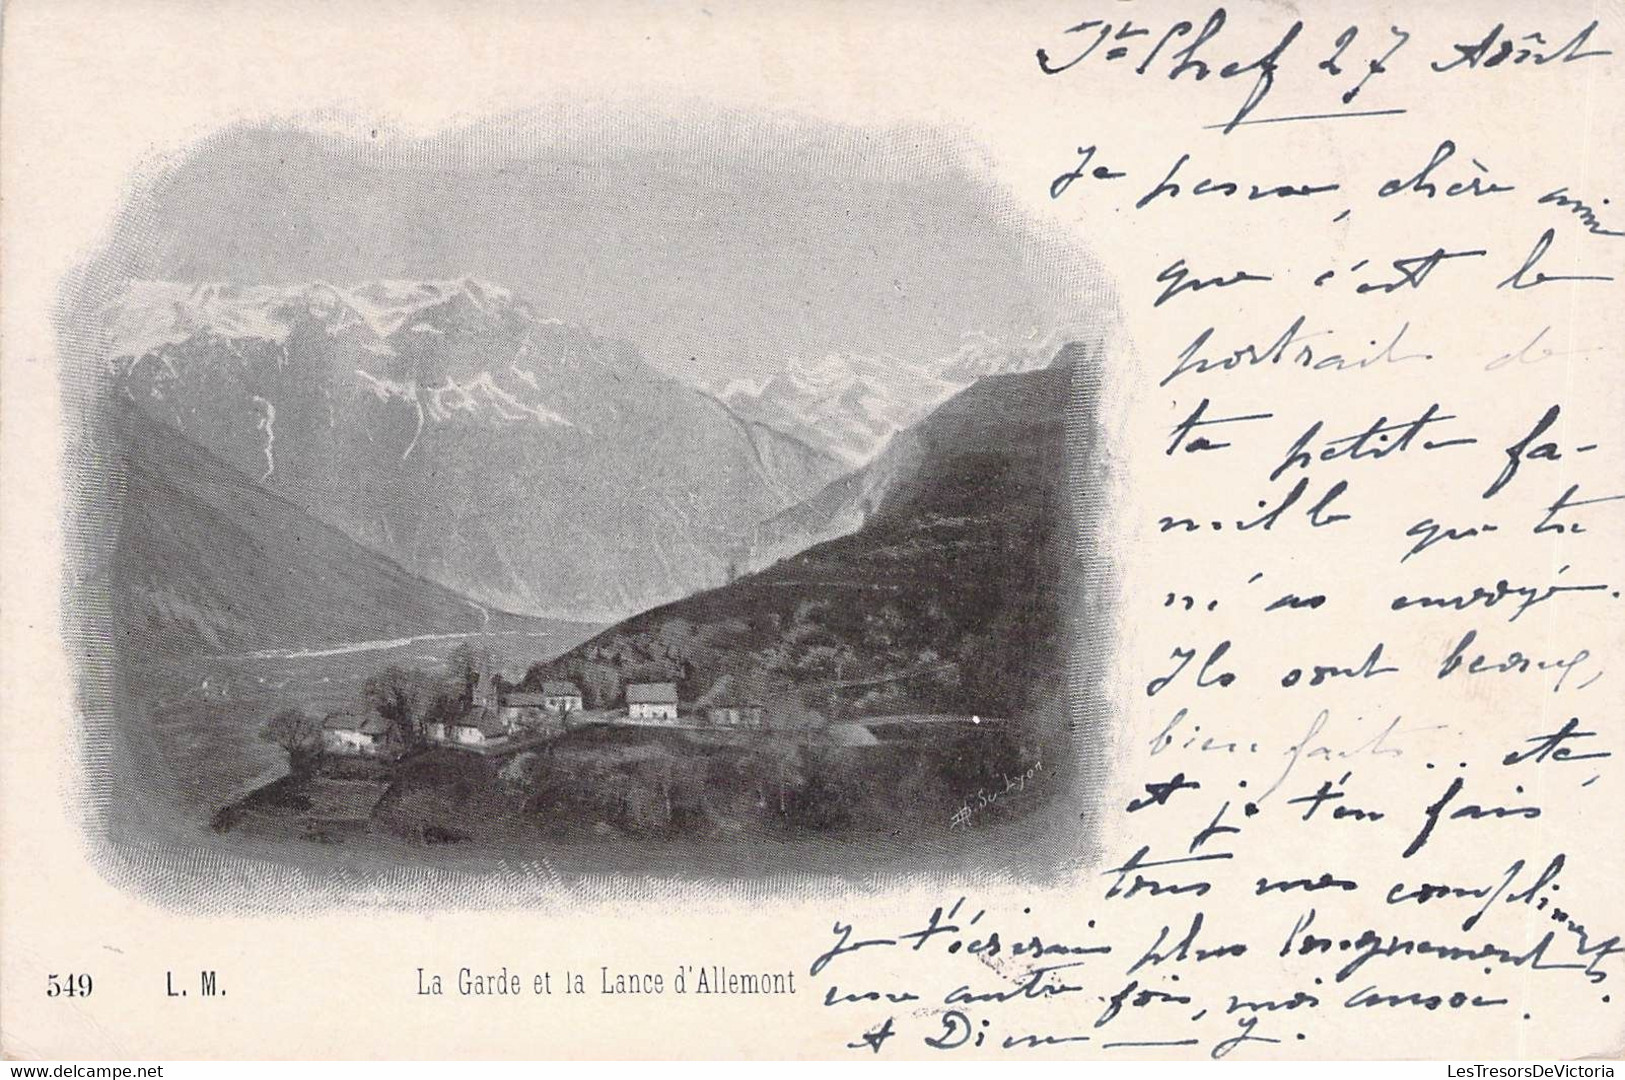 St Chef 27 Août
Je pense, chère amie
que c'est le
portrait de
ta petite fa-
mille que tu
m'as envoyé.
Ils sont beaux,
bien faits.. etc,
et je t'en fais
tous mes compliments.
Je t'écrirai plus longuement
une autre fois, moi aussi.
A Dieu — Y.
DR Sc. Lyon
549 L. M. La Garde et la Lance d'Allemont
LesTresorsDeVictoria